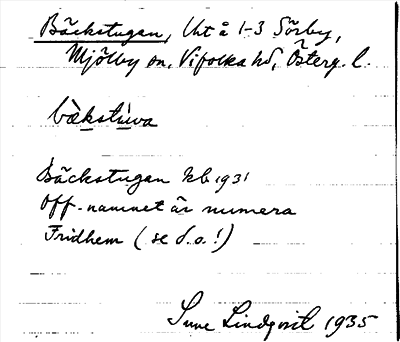 Bäckstugan, Uht å 1-3 Sörby,
Mjölby sn, Vifolka hd, Österg. l.
bàkstúwa
Bäckstugan kb 1931
Off. namnet är numera
Fridhem (se d.o.!)
Sune Lindqvist 1935